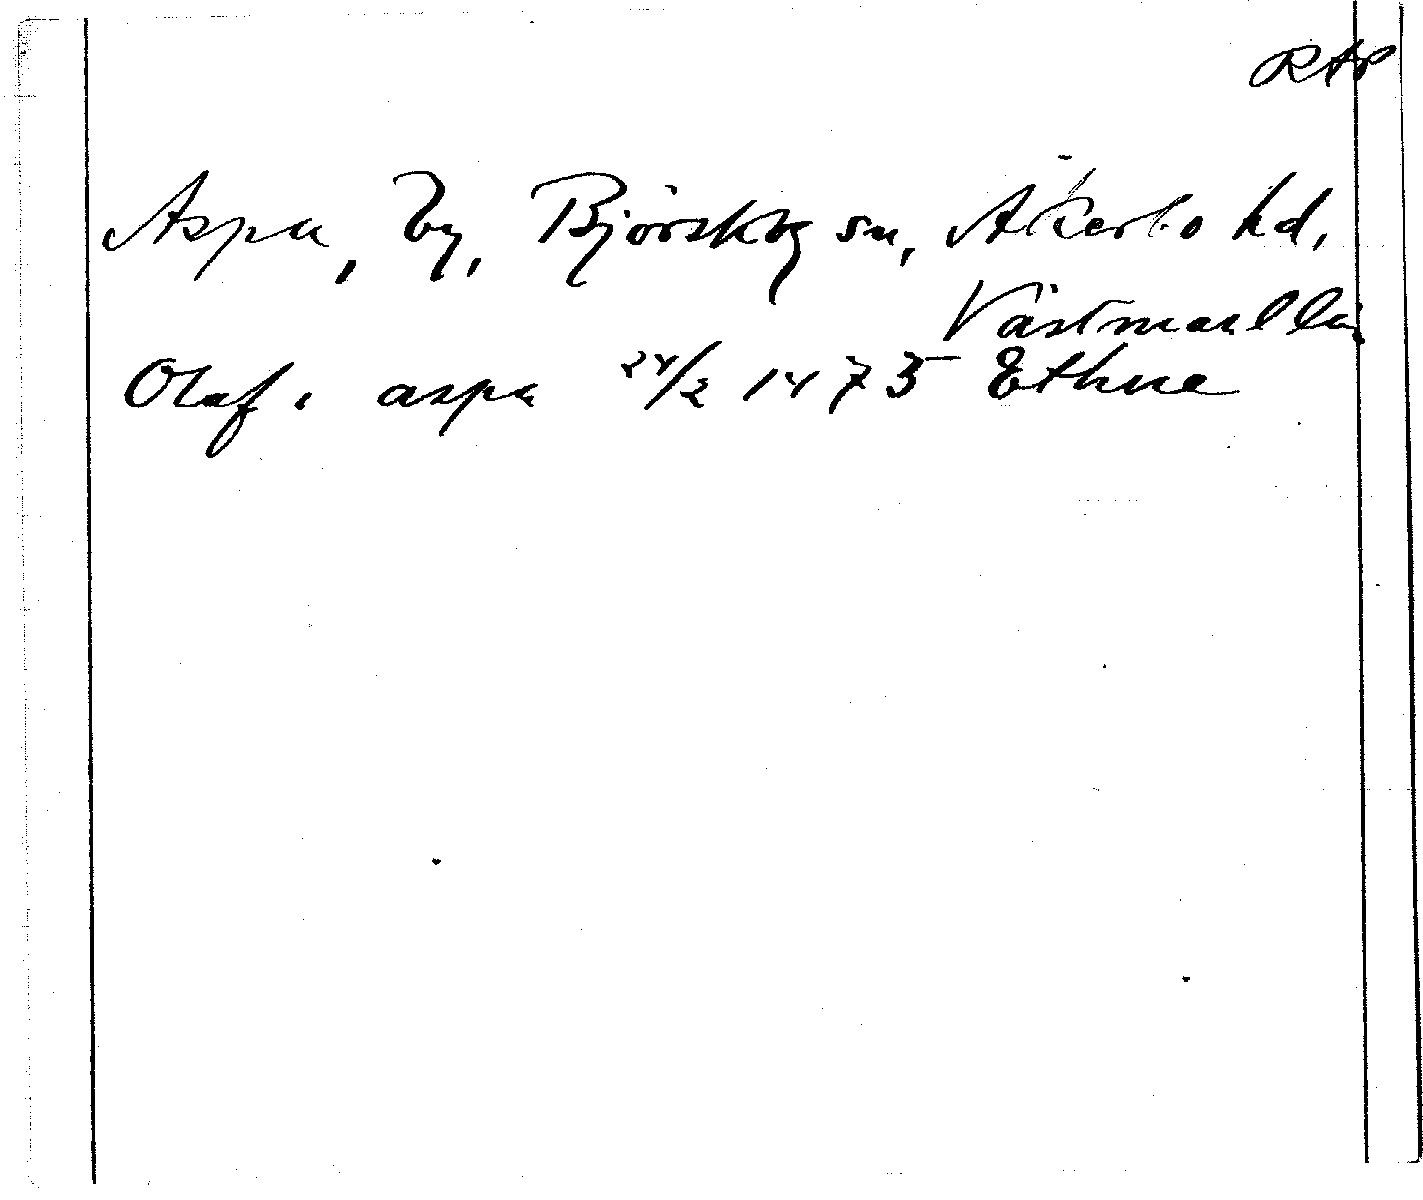 RAP
Aspa, by, Björskog sn, Åkerbo hd,
Västmanl. län
Olaf i aspa 24/2 1473 Ethne